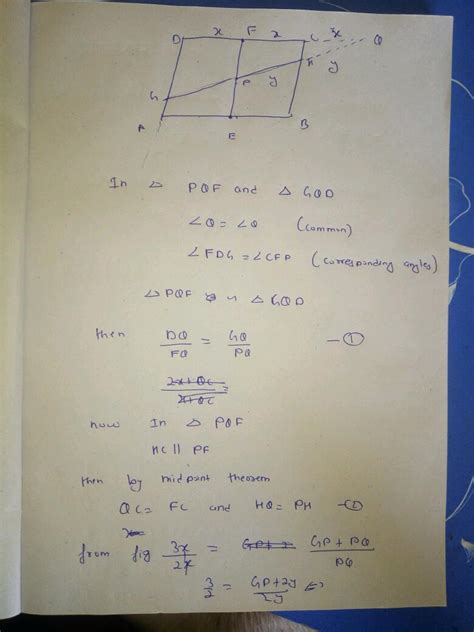 D x F x C x Q
G P y H y
A E B
In △ PQF and △ GQD
∠Q = ∠Q (common)
∠FDG = ∠CFP (corresponding angles)
△ PQF ~ △ GQD
then DQ/FQ = GQ/PQ —①
2x+QC/x+QC =
now In △ PQF
HC || PF
then by midpant theorem
QC = FC and HQ = PH —②
from fig 3x/2x = GP + PQ/PQ
3/2 = GP+2y/2y ⇒